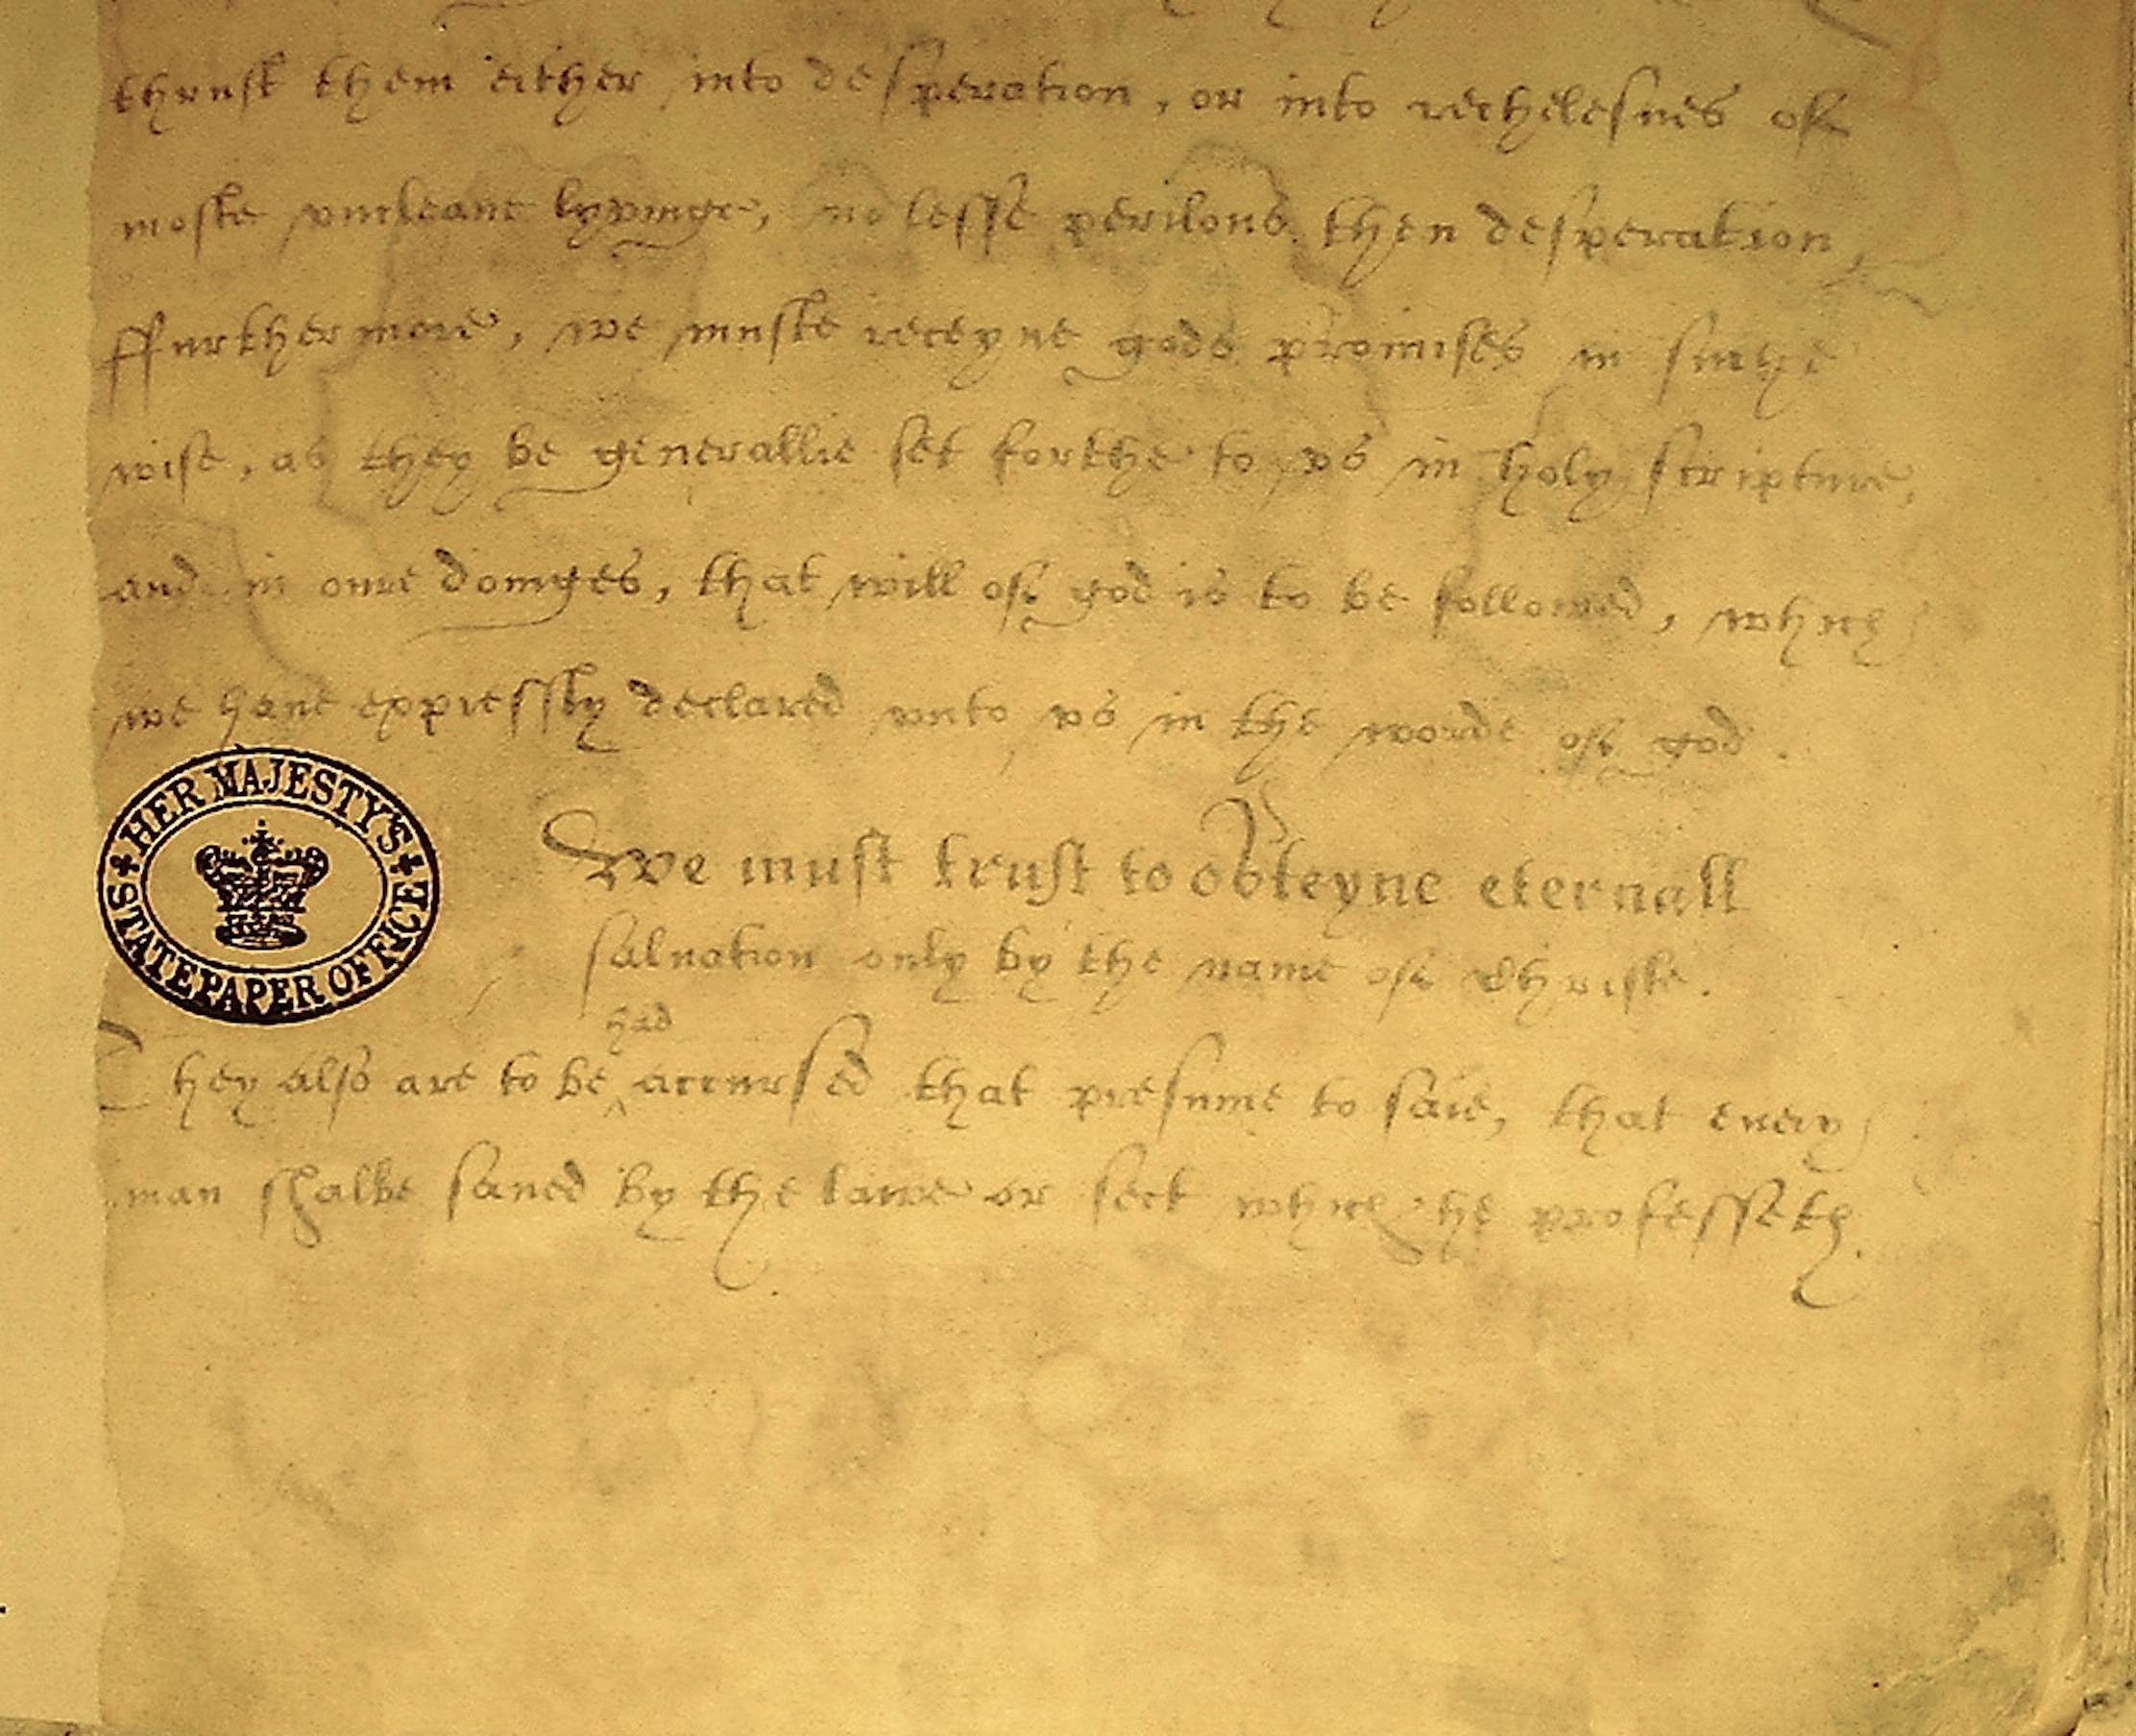 thrust them either into desperation, or into rechelesnes of
moste vncleane lyvinge, no lesse perilous then desperation,
ffurthermore, we muste receyue gods promises in suche
wise, as they be generallie set forthe to vs in holy scripture,
and in oure doinges, that will of god is to be followed, which
we haue expressly declared vnto vs in the worde of god.
HER MAJESTY'S STATE PAPER OFFICE
We must trust to obteyne eternall
saluation only by the name of Christe.
had
They also are to be ^ accursed that presume to saie, that euery
man shalbe saued by the lawe or sect which he professeth.